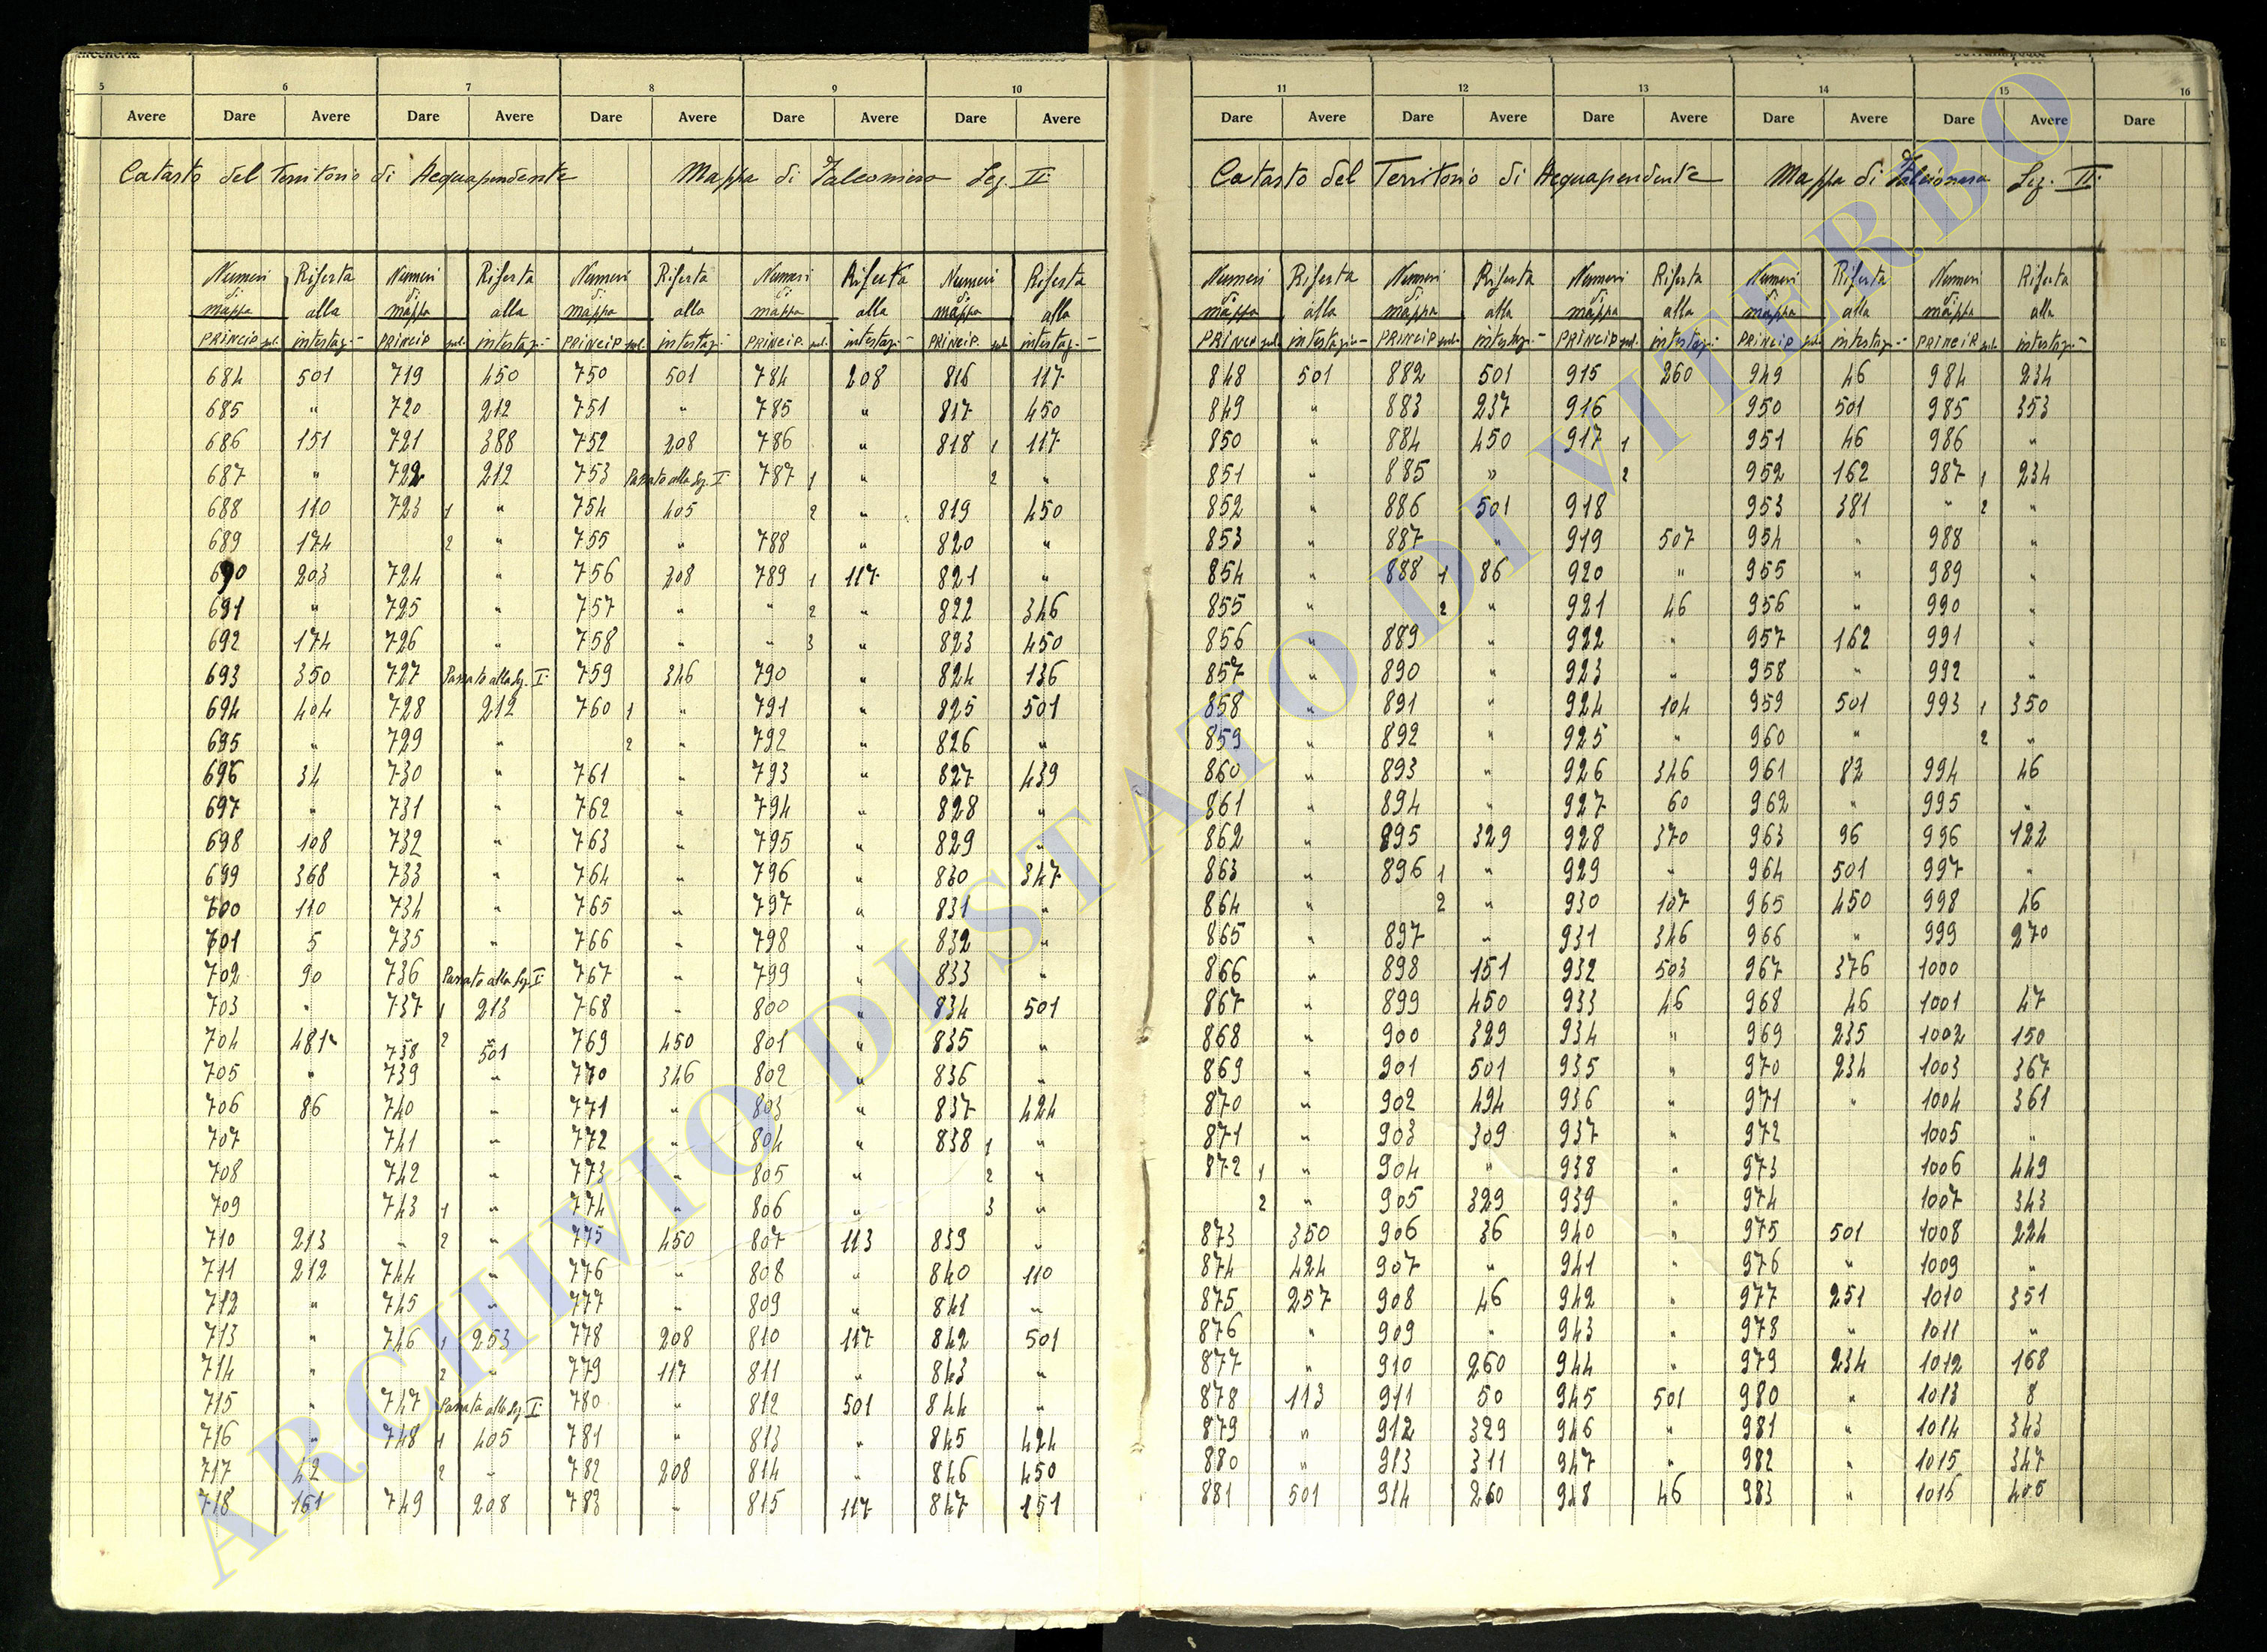 5 6 7 8 9 10
Avere Dare Avere Dare Avere Dare Avere Dare Avere Dare Avere
Catasto del Territorio di Acquapendente Mappa di Falconiera Sez. II
Numeri Riferta Numeri Riferta Numeri Riferta Numeri Riferta Numeri Riferta
di di di di di
mappa alla mappa alla mappa alla mappa alla mappa alla
PRINCIP. sub. intestaz. PRINCIP. sub. intestaz. PRINCIP. sub. intestaz. PRINCIP. sub. intestaz. PRINCIP. sub. intestaz.
684 501 719 450 750 501 784 208 816 117
685 " 720 212 751 " 785 " 817 450
686 151 721 388 752 208 786 " 818 1 117
687 " 722 212 753 Passato alla Sez. I 787 1 " 2 "
688 110 723 1 " 754 405 2 " 819 450
689 174 2 " 755 " 788 " 820 "
690 203 724 " 756 208 789 1 117 821 "
691 " 725 " 757 " " 2 " 822 346
692 174 726 " 758 " " 3 " 823 450
693 350 727 Passato alla Sez. I 759 346 790 " 824 136
694 404 728 212 760 1 " 791 " 825 501
695 " 729 " 2 " 792 " 826 "
696 34 730 " 761 " 793 " 827 439
697 " 731 " 762 " 794 " 828 "
698 108 732 " 763 " 795 " 829 "
699 368 733 " 764 " 796 " 830 347
700 110 734 " 765 " 797 " 831 "
701 5 735 " 766 " 798 " 832 "
702 90 736 Passato alla Sez. I 767 " 799 " 833 "
703 " 737 1 213 768 " 800 " 834 501
704 481 2 " 769 450 801 " 835 "
738 501
705 " 739 " 770 346 802 " 836 "
706 86 740 " 771 " 803 " 837 424
707 741 " 772 " 804 " 838 1 "
708 742 " 773 " 805 " 2 "
709 743 1 " 774 " 806 " 3 "
710 213 " 2 " 775 450 807 113 839 "
711 212 744 " 776 " 808 " 840 110
712 " 745 " 777 " 809 " 841 "
713 " 746 1 253 778 208 810 117 842 501
714 " 2 " 779 117 811 " 843 "
715 " 747 Passato alla Sez. I 780 " 812 501 844 "
716 " 748 1 405 781 " 813 " 845 424
717 42 2 " 782 208 814 " 846 450
718 161 749 208 783 " 815 117 847 151
11 12 13 14 15 16
Dare Avere Dare Avere Dare Avere Dare Avere Dare Avere Dare
Catasto del Territorio di Acquapendente Mappa di Falconiera Sez. II
Numeri Riferta Numeri Riferta Numeri Riferta Numeri Riferta Numeri Riferta
di di di di di
mappa alla mappa alla mappa alla mappa alla mappa alla
PRINCIP. sub. intestaz. PRINCIP. sub. intestaz. PRINCIP. sub. intestaz. PRINCIP. sub. intestaz. PRINCIP. sub. intestaz.
848 501 882 501 915 260 949 46 984 234
849 " 883 237 916 950 501 985 353
850 " 884 450 917 1 951 46 986 "
851 " 885 " 2 952 162 987 1 234
852 " 886 501 918 953 381 " 2 "
853 " 887 " 919 507 954 " 988 "
854 " 888 1 86 920 " 955 " 989 "
855 " 2 " 921 46 956 " 990 "
856 " 889 " 922 " 957 162 991 "
857 " 890 " 923 " 958 " 992 "
858 " 891 " 924 104 959 501 993 1 350
859 " 892 " 925 " 960 " 2 "
860 " 893 " 926 346 961 82 994 46
861 " 894 " 927 60 962 " 995 "
862 " 895 329 928 370 963 96 996 122
863 " 896 1 " 929 " 964 501 997 "
864 " 2 " 930 107 965 450 998 46
865 " 897 " 931 346 966 " 999 270
866 " 898 151 932 503 967 376 1000
867 " 899 450 933 46 968 46 1001 47
868 " 900 329 934 " 969 235 1002 150
869 " 901 501 935 " 970 234 1003 367
870 " 902 494 936 " 971 " 1004 361
871 " 903 309 937 " 972 1005 "
872 1 " 904 " 938 " 973 1006 449
2 " 905 329 939 " 974 1007 343
873 350 906 36 940 " 975 501 1008 224
874 424 907 " 941 " 976 " 1009 "
875 257 908 46 942 " 977 251 1010 351
876 " 909 " 943 " 978 " 1011 "
877 " 910 260 944 " 979 234 1012 168
878 113 911 50 945 501 980 " 1013 8
879 " 912 329 946 " 981 " 1014 343
880 " 913 311 947 " 982 " 1015 347
881 501 914 260 948 46 983 " 1016 405
ARCHIVIO DI STATO DI VITERBO